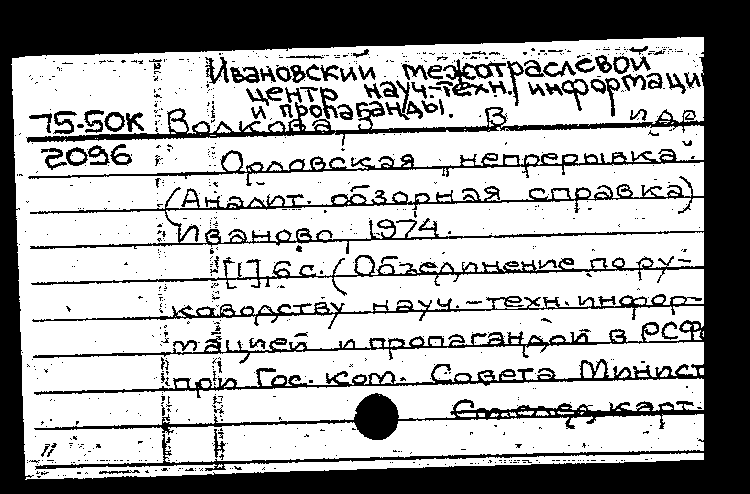 Ивановский межотраслевой
центр науч.-техн. информации
и пропаганды.
75-50К Волкова З В и др
2096
Орловская „непрерывка".
(Аналит. обзорная справка)
Иваново, 1974.
[1], 6 с. (Объединение по ру-
ководству науч.-техн. инфор-
мацией и пропагандой в РСФ
при Гос. ком. Совета Минист
См. след. карт.
11